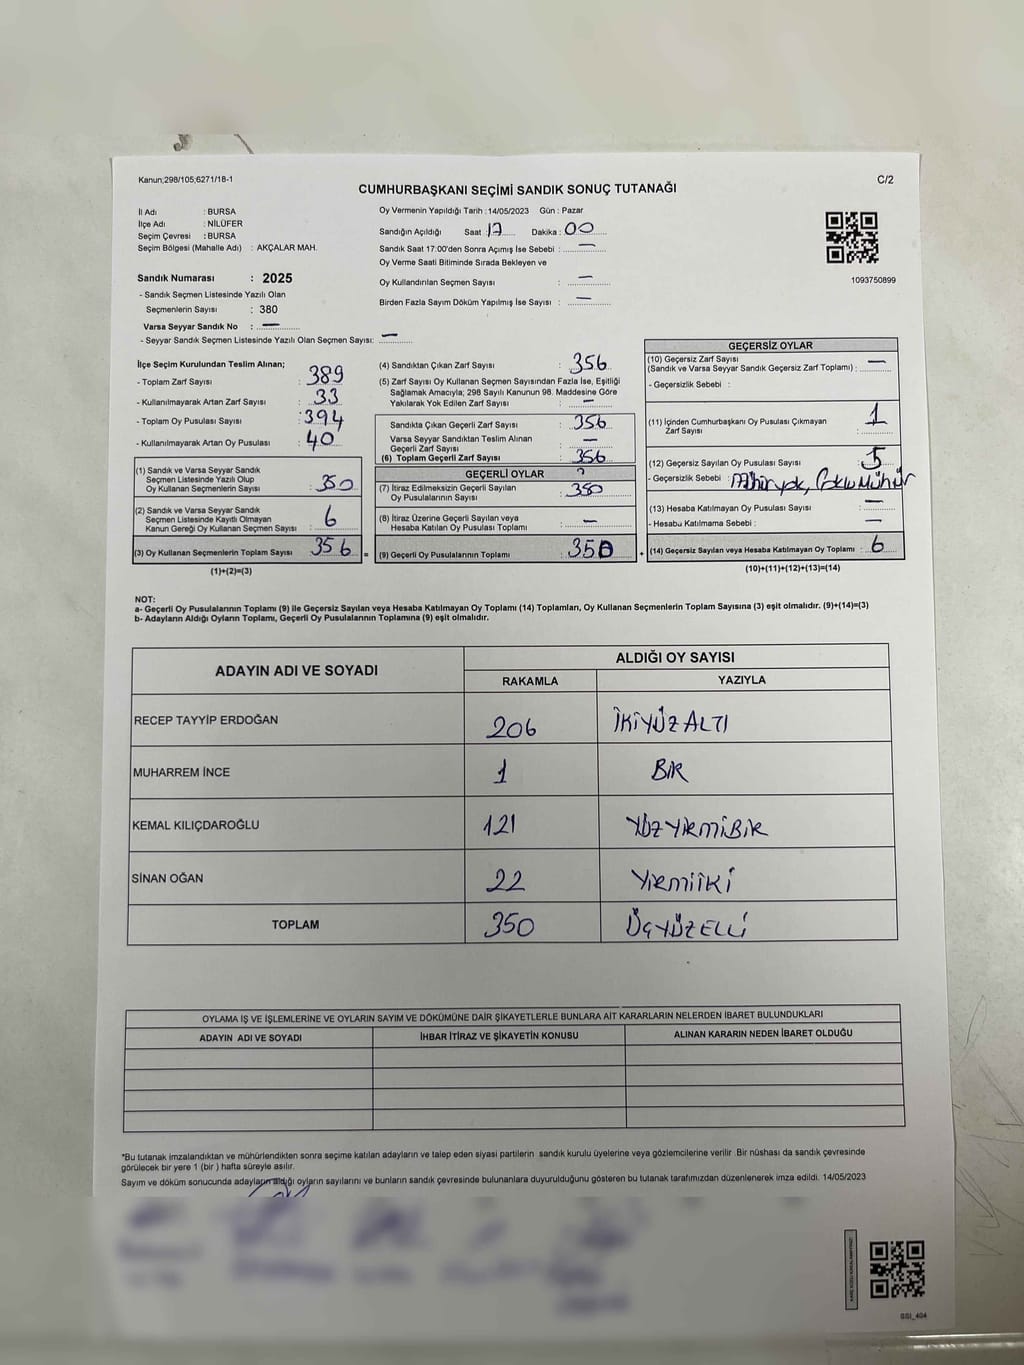 Kanun;298/105;6271/18-1
C/2
CUMHURBAŞKANI SEÇİMİ SANDIK SONUÇ TUTANAĞI
İl Adı : BURSA
İlçe Adı : NİLÜFER
Seçim Çevresi : BURSA
Seçim Bölgesi (Mahalle Adı) : AKÇALAR MAH.
Oy Vermenin Yapıldığı Tarih :14/05/2023 Gün : Pazar
Sandığın Açıldığı Saat :17 Dakika : 00
Sandık Saat 17:00'den Sonra Açımış İse Sebebi : —
Oy Verme Saati Bitiminde Sırada Bekleyen ve
Oy Kullandırılan Seçmen Sayısı : —
Birden Fazla Sayım Döküm Yapılmış İse Sayısı : —
1093750899
Sandık Numarası : 2025
- Sandık Seçmen Listesinde Yazılı Olan
Seçmenlerin Sayısı : 380
Varsa Seyyar Sandık No : —
- Seyyar Sandık Seçmen Listesinde Yazılı Olan Seçmen Sayısı: —
İlçe Seçim Kurulundan Teslim Alınan;
- Toplam Zarf Sayısı : 389
- Kullanılmayarak Artan Zarf Sayısı : 33
- Toplam Oy Pusulası Sayısı : 394
- Kullanılmayarak Artan Oy Pusulası : 40
(1) Sandık ve Varsa Seyyar Sandık
Seçmen Listesinde Yazılı Olup
Oy Kullanan Seçmenlerin Sayısı : 350
(2) Sandık ve Varsa Seyyar Sandık
Seçmen Listesinde Kayıtlı Olmayan
Kanun Gereği Oy Kullanan Seçmen Sayısı : 6
(3) Oy Kullanan Seçmenlerin Toplam Sayısı : 356
(1)+(2)=(3)
(4) Sandıktan Çıkan Zarf Sayısı : 356
(5) Zarf Sayısı Oy Kullanan Seçmen Sayısından Fazla İse, Eşitliği
Sağlamak Amacıyla; 298 Sayılı Kanunun 98. Maddesine Göre
Yakılarak Yok Edilen Zarf Sayısı : —
Sandıkta Çıkan Geçerli Zarf Sayısı : 356
Varsa Seyyar Sandıktan Teslim Alınan
Geçerli Zarf Sayısı : —
(6) Toplam Geçerli Zarf Sayısı : 356
GEÇERLİ OYLAR
(7) İtiraz Edilmeksizin Geçerli Sayılan
Oy Pusulalarının Sayısı : 350
(8) İtiraz Üzerine Geçerli Sayılan veya
Hesaba Katılan Oy Pusulası Toplamı : —
= (9) Geçerli Oy Pusulalarının Toplamı : 350
GEÇERSİZ OYLAR
(10) Geçersiz Zarf Sayısı
(Sandık ve Varsa Seyyar Sandık Geçersiz Zarf Toplamı) : —
- Geçersizlik Sebebi :
(11) İçinden Cumhurbaşkanı Oy Pusulası Çıkmayan
Zarf Sayısı : 1
(12) Geçersiz Sayılan Oy Pusulası Sayısı : 5
- Geçersizlik Sebebi :
(13) Hesaba Katılmayan Oy Pusulası Sayısı : —
- Hesaba Katılmama Sebebi : —
+ (14) Geçersiz Sayılan veya Hesaba Katılmayan Oy Toplamı : 6
(10)+(11)+(12)+(13)=(14)
NOT:
a- Geçerli Oy Pusulalarının Toplamı (9) ile Geçersiz Sayılan veya Hesaba Katılmayan Oy Toplamı (14) Toplamları, Oy Kullanan Seçmenlerin Toplam Sayısına (3) eşit olmalıdır. (9)+(14)=(3)
b- Adayların Aldığı Oyların Toplamı, Geçerli Oy Pusulalarının Toplamına (9) eşit olmalıdır.
ADAYIN ADI VE SOYADI
ALDIĞI OY SAYISI
RAKAMLA YAZIYLA
RECEP TAYYİP ERDOĞAN 206 İKİYÜZ ALTI
MUHARREM İNCE 1 BİR
KEMAL KILIÇDAROĞLU 121 YÜZ YİRMİBİR
SİNAN OĞAN 22 YİRMİİKİ
TOPLAM 350 ÜÇYÜZELLİ
OYLAMA İŞ VE İŞLEMLERİNE VE OYLARIN SAYIM VE DÖKÜMÜNE DAİR ŞİKAYETLERLE BUNLARA AİT KARARLARIN NELERDEN İBARET BULUNDUKLARI
ADAYIN ADI VE SOYADI İHBAR İTİRAZ VE ŞİKAYETİN KONUSU ALINAN KARARIN NEDEN İBARET OLDUĞU
*Bu tutanak imzalandıktan ve mühürlendikten sonra seçime katılan adayların ve talep eden siyasi partilerin sandık kurulu üyelerine veya gözlemcilerine verilir. Bir nüshası da sandık çevresinde
görülecek bir yere 1 (bir ) hafta süreyle asılır.
Sayım ve döküm sonucunda adayların aldığı oyların sayılarını ve bunların sandık çevresinde bulunanlara duyurulduğunu gösteren bu tutanak tarafımızdan düzenlenerek imza edildi. 14/05/2023
GSI_404